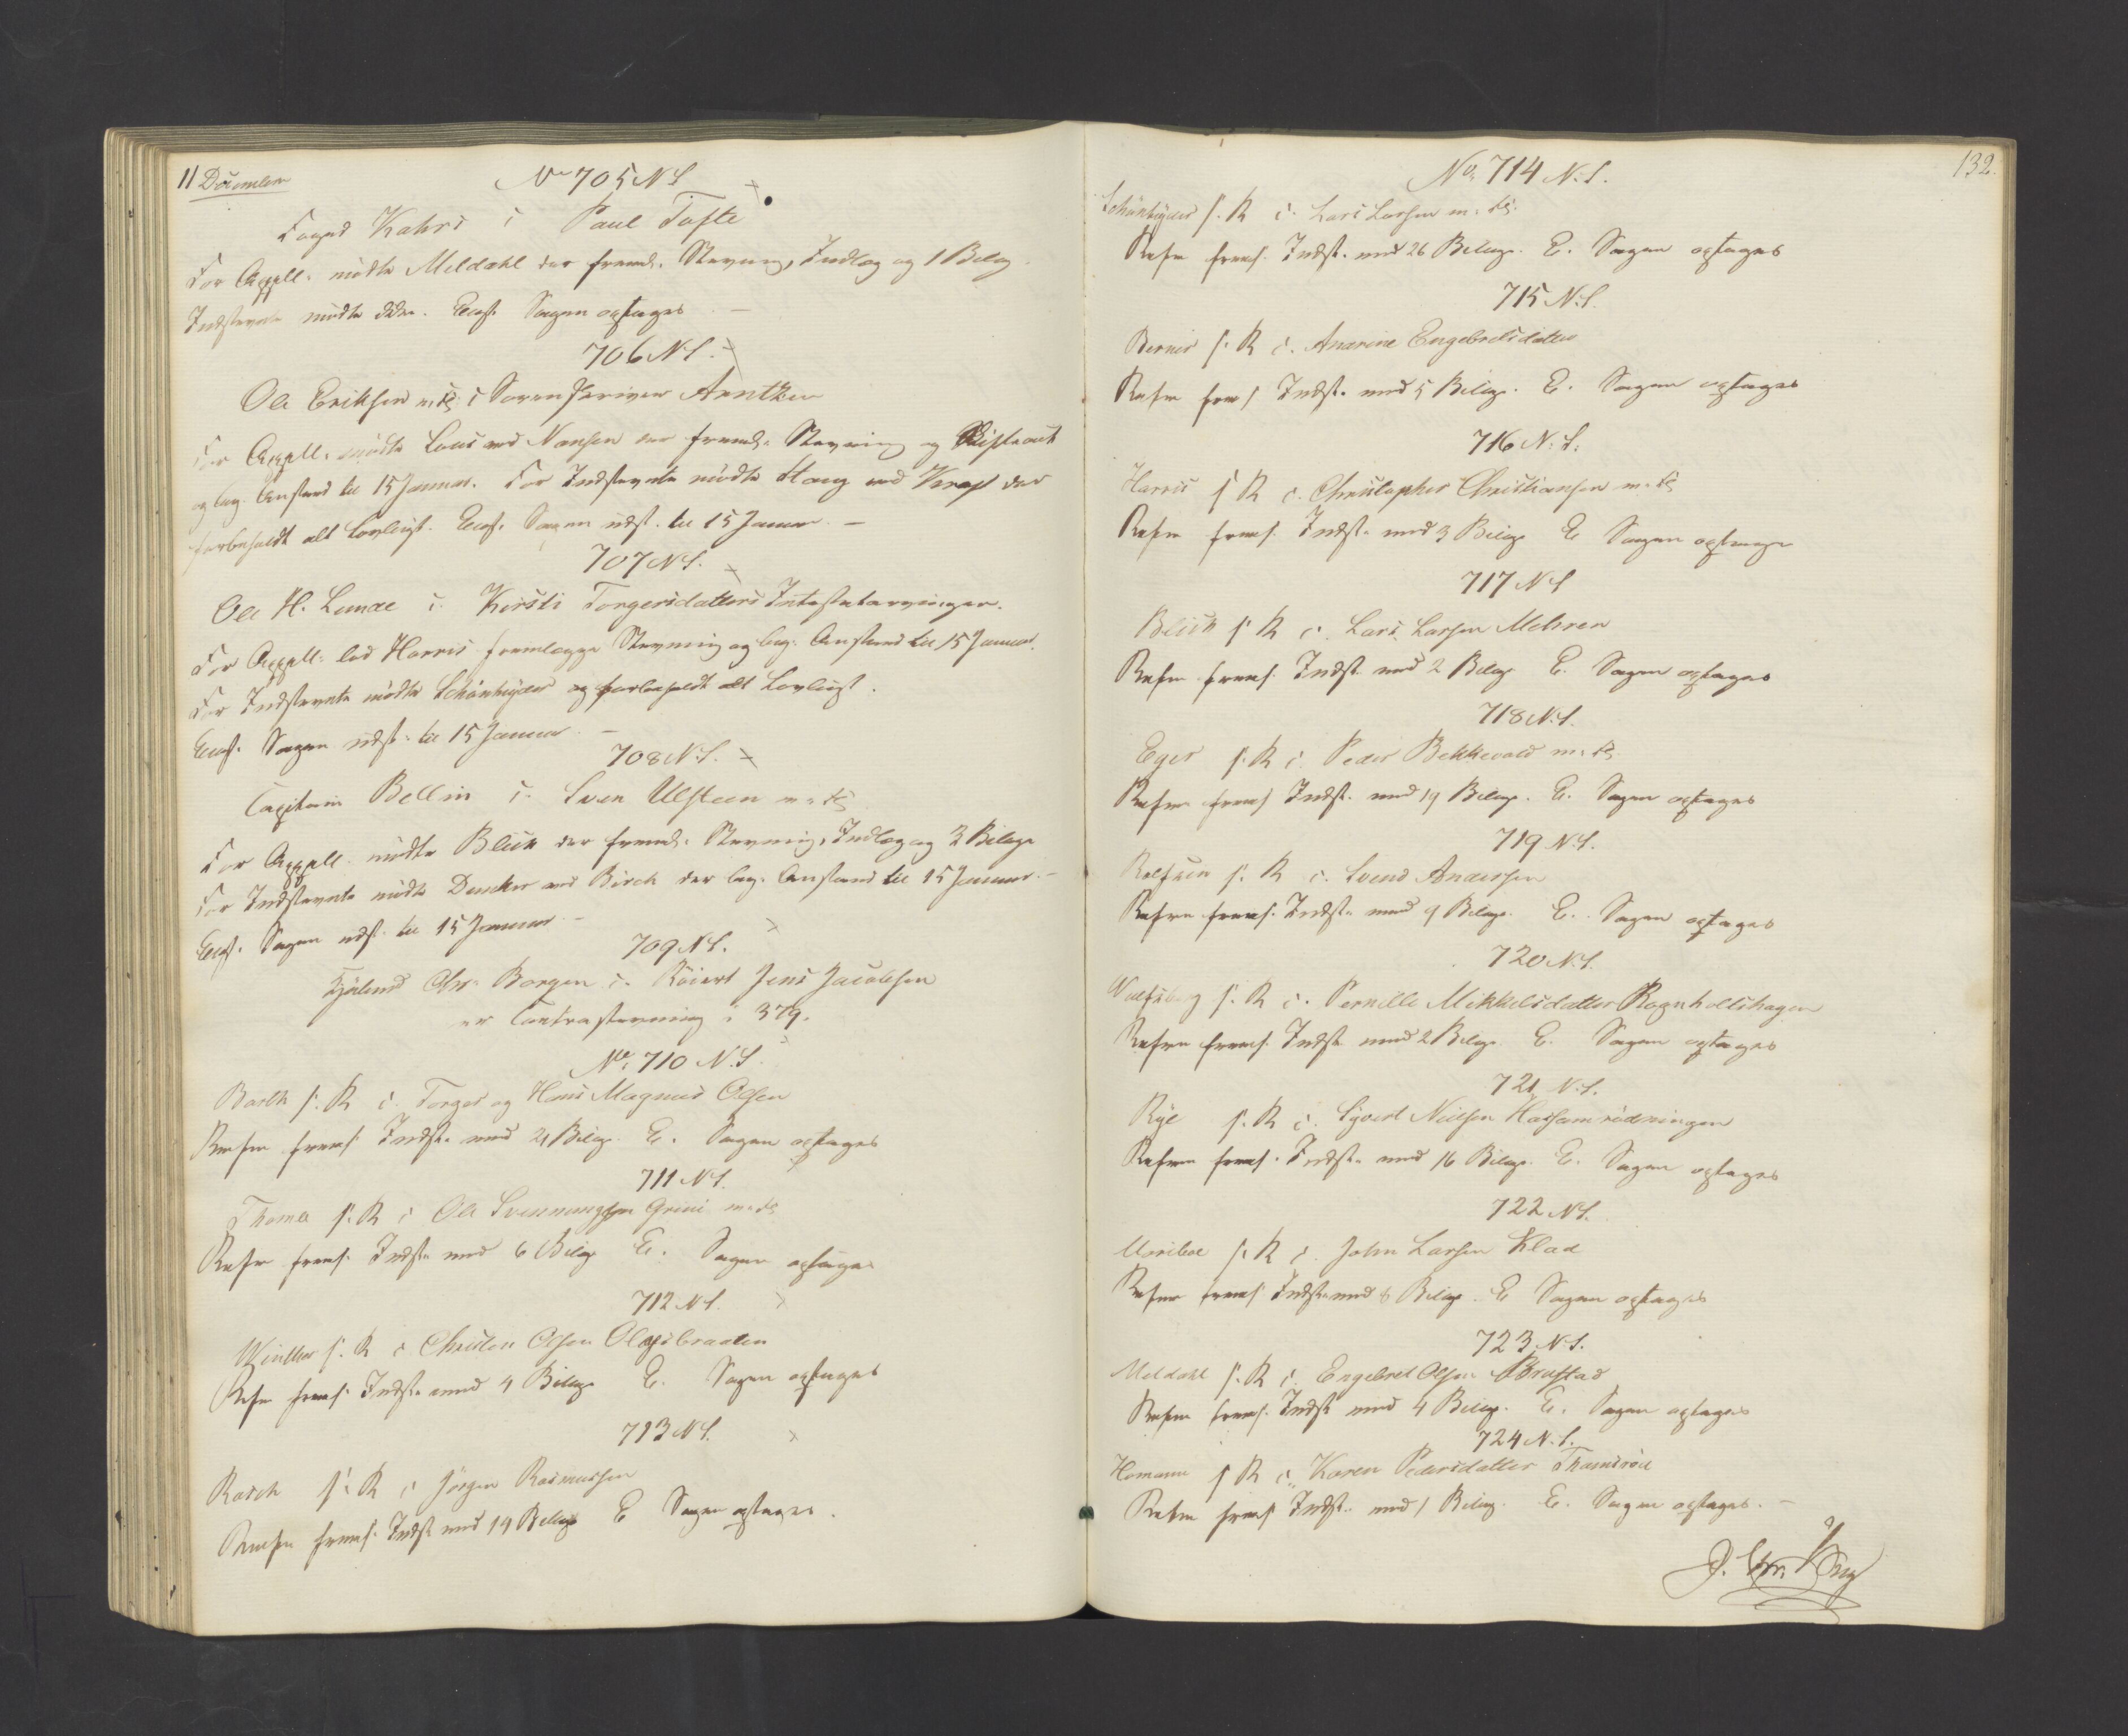 11 December
No 705 N S
Foged Kahrs c Paul Tofte
For Appell. mødte Meldahl der freml. Stevning, Indlæg og 1 Bilag
Indstevnte mødte ikke. Eragt. Sagen optages
706 N S.
Ole Eriksen m. fl. c Sorenskriver Arntzen
For Appell. mødte Lous ved Nansen der freml. Stevning og
og beg. Anstand til 15 Januar. For Indstevnte mødte Haug ved der
forbeholdt alt Lovligt. Eragt. Sagen udst. til 15 Januar. –
707 N S.
Ole H. Lunde c. Kirsti Torgersdatters Intestatarvinger.
For Appell. lod Harris fremlægge Stevning og beg. Anstand til 15 Januar.
For Indstevnte mødte Schönheyder og forbeholdt alt Lovligt.
Eragt. Sagen udst. til 15 Januar. –
708 N. S.
Capitain Bellin c. Sven Ulsteen m. fl.
For Appell. mødte Blich der freml. Stevning, Indlæg og 3 Bilage
For Indstevnte mødte Duncker ved Birch der beg. Anstand til 15 Januar. –
Eragt. Sagen udst. til 15 Januar –
709 N S.
Chr. Borgen c. Jens Jacobsen
er Contrastevning i 379.
No 710 N. S.
Barth s. R c. Torger og Hans Magnus Olsen
Refr frems. Indst. med 21 Bilag. E. Sagen optages
711 N S.
Thomle s. R c Ole Svenningsen Grini m. fl.
Refr frems. Indst. med 6 Bilag E. Sagen optages
712 N S.
Winther s. R c Christen Olsen Olafsbraaten
Refr frems. Indst. med 4 Bilage E. Sagen optages
713 N S.
Rasch s. R c Jörgen Rasmussen
Refr frems. Indst med 14 Bilage E Sagen optages.
132.
No 714 N. S.
Schönheyder s. R c. Lars Larsen m. fl.
Refr frems. Indst. med 26 Bilage. E. Sagen optages
715 N. S.
Berner s. R c. Anarine Engebretsdatter
Refr frems Indst. med 5 Bilage. E. Sagen optages
716 N. S.
Harris s R c. Christopher Christiansen m. fl.
Refr frems. Indst. med 3 Bilage E Sagen optages
717 N S
Blich s. R c. Lars Larsen Mehren
Refr frems. Indst med 2 Bilage E. Sagen optages
718 N. S.
Eger s. R c. Peder Bekkevold m. fl.
Refr frems Indst. med 19 Bilage. E. Sagen optages
719 N. S.
s. R c. Svend Andersen
Refr frems. Indst. med 9 Bilage. E. Sagen optages
720 N. S.
Wulfsberg s. R c. Pernille Mikkelsdatter Rognholtshagen
Refr frems. Indst med 2 Bilage. E. Sagen optages
721 N. S.
Rye s. R c. Syvert Nielsen
Refr frems. Indst. med 16 Bilage. E. Sagen optages
722 N S.
Mariboe s. R c. John Larsen Klad
Refr frems Indst. med 8 Bilage. E Sagen optages
723 N. S.
Meldahl s. R c. Engebret Olsen Brustad
Refr frems. Indst med 4 Bilage. E. Sagen optages
724 N. S.
Homann s R c. Karen Pedersdatter Thamsröe
Refr frems Indst. med 1 Bilag. E. Sagen optages. –
J. Chr. Berg